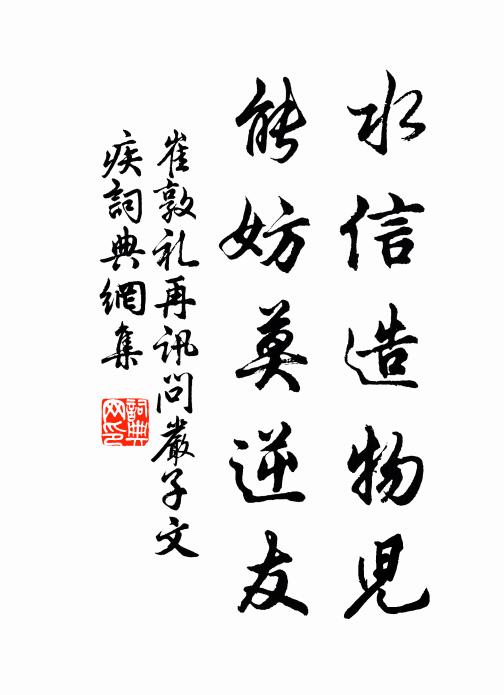 水信造物児
能妨莫逆友
崔敦礼再訊問嚴子文
疾詞典網集
詞典
网印